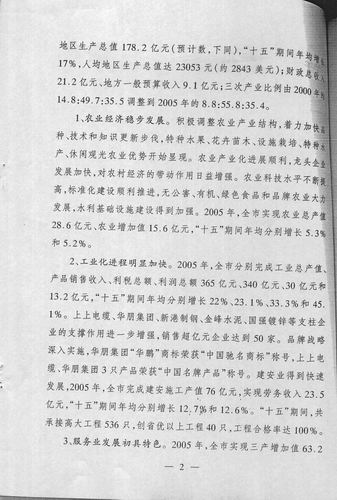 地区生产总值178.2亿元(预计数,下同),“十五”期间年均增长
17%,人均地区生产总值达23053元(约2843美元);财政总收入
21.2亿元、地方一般预算收入9.1亿元;三次产业比例由2000年的
14.8:49.7:35.5调整到2005年的8.8:55.8:35.4。
1、农业经济稳步发展。积极调整农业产业结构,着力加快品
种、技术和知识更新步伐,特种水果、花卉苗木、设施栽培、特种水
产、休闲观光农业优势开始显现。农业产业化进展顺利,龙头企业
发展加快,对农村经济的带动作用日益增强。农业科技水平不断提
高,标准化建设顺利推进,无公害、有机、绿色食品和品牌农业大力
发展,水利基础设施建设得到加强。2005年,全市实现农业总产值
28.6亿元、农业增加值15.6亿元,“十五”期间年均分别增长5.3%
和5.2%。
2、工业化进程明显加快。2005年,全市分别完成工业总产值、
产品销售收入、利税总额、利润总额365亿元、340亿元、30亿元和
13.2亿元,“十五”期间年均分别增长22%、23.1%、33.3%和45.
1%。上上电缆、华朋集团、新港制钢、金峰水泥、国强镀锌等支柱企
业的支撑作用进一步增强,销售超亿元企业达到50家。品牌战略
深入实施,华朋集团“华鹏”商标荣获“中国驰名商标”称号,上上电
缆、华朋集团3只产品荣获“中国名牌产品”称号。建安业得到快速
发展,2005年,全市完成建安施工产值76亿元,实现劳务收入23.5
亿元,“十五”期间年均分别增长12.7%和12.6%。“十五”期间,共
承接高大工程536只,创省优以上工程40只,工程合格率达100%。
3、服务业发展初具特色。2005年,全市实现三产增加值63.2
— 2 —